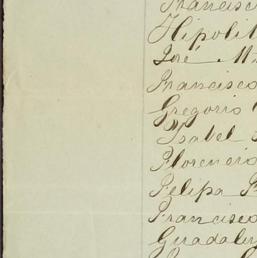 Francisc
Hipolit
José M
Francisco
Gregorio
Isabel
Florencio
Felipa
Francisco
Guadalu